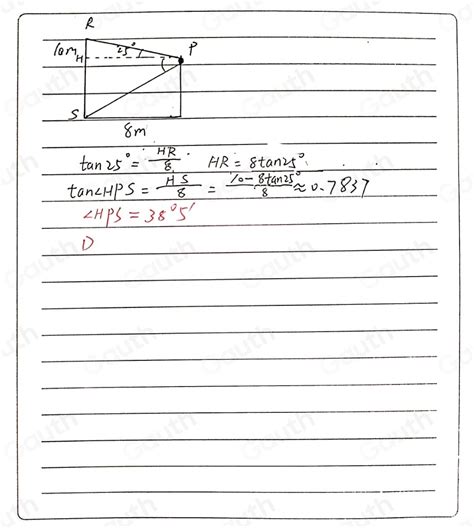 R
10m
25°
P
H
S
8m
tan25° = HR/8 HR = 8tan25°
tan∠HPS = HS/8 = 10-8tan25°/8 ≈ 0.7837
∠HPS = 38°5'
D
Gauth